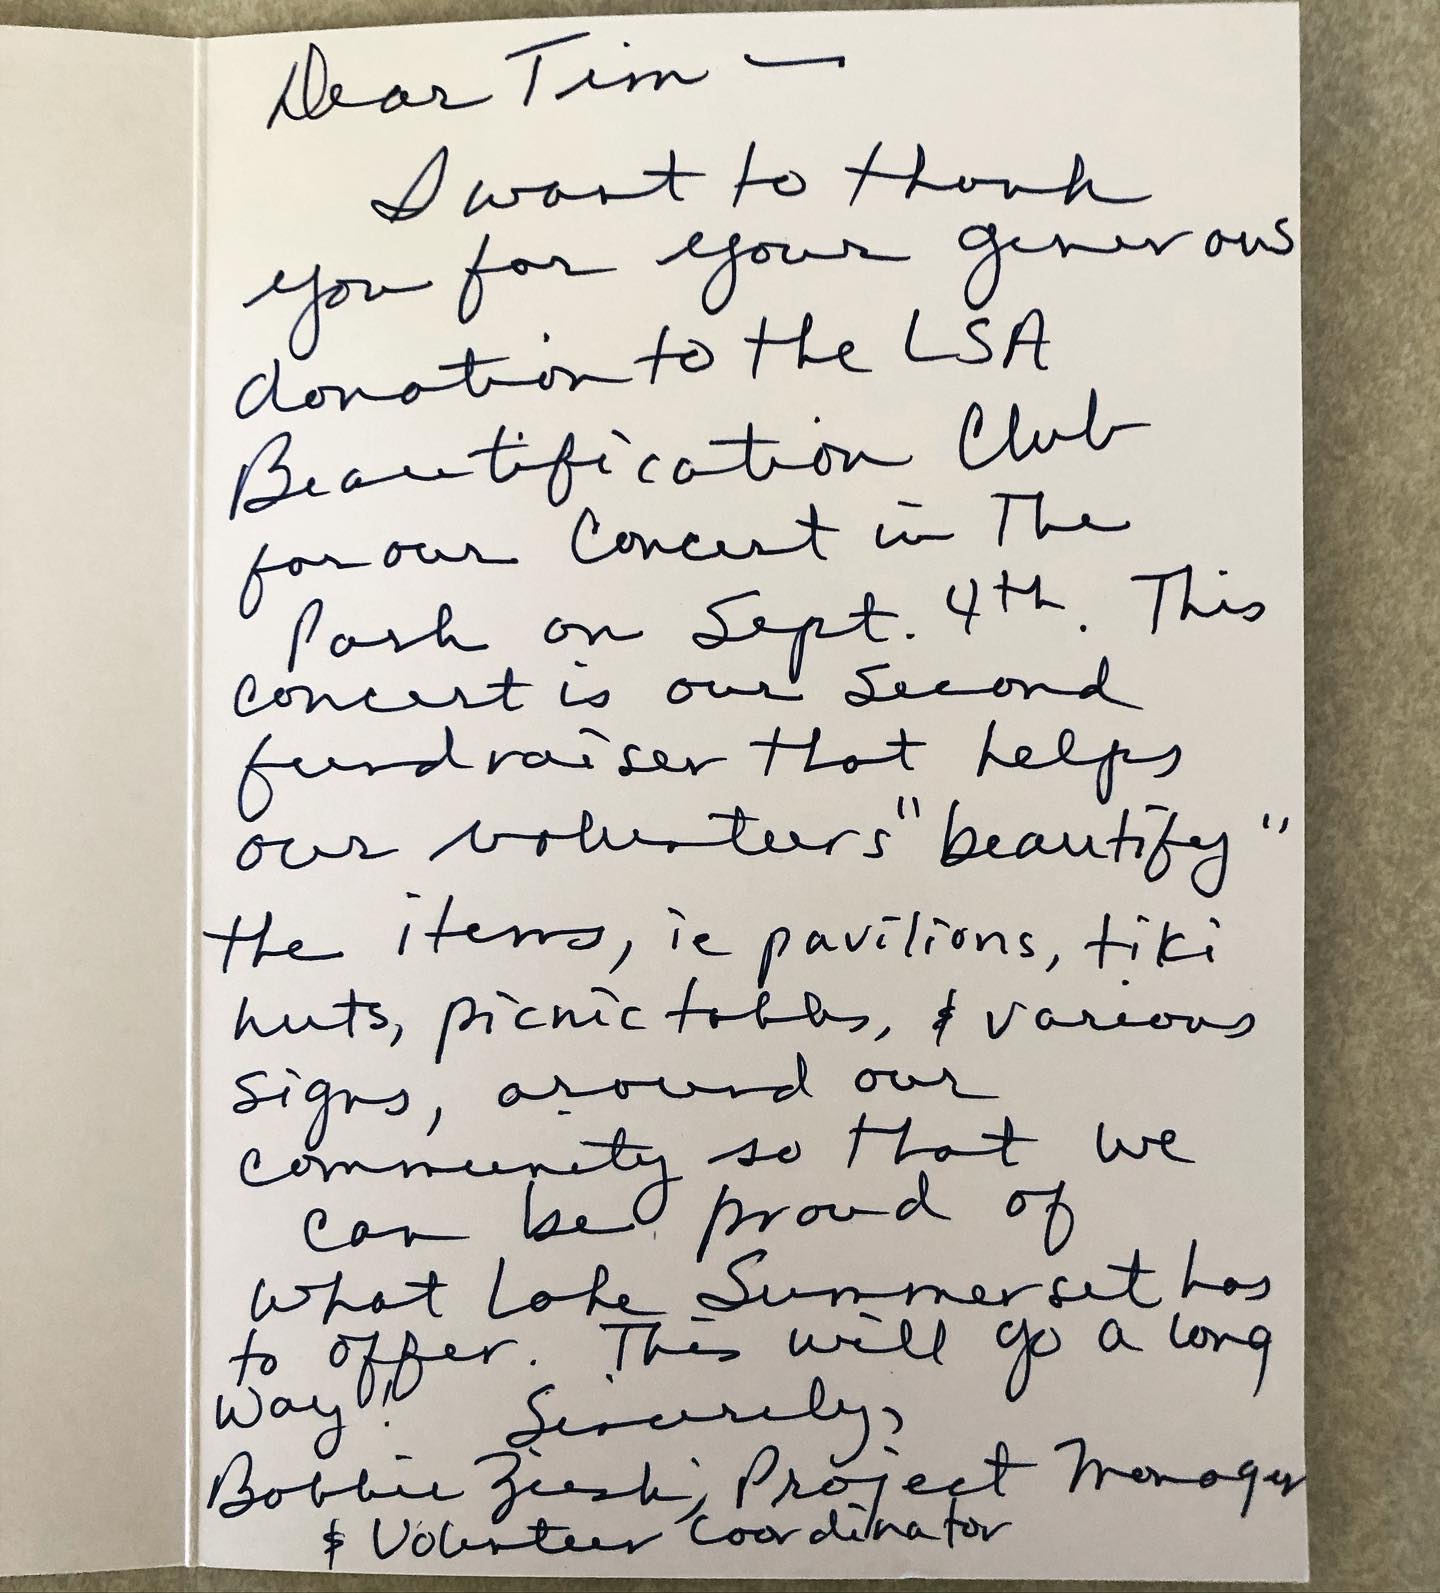 Dear Tim —
I want to thank
you for your generous
donation to the LSA
Beautification Club
for our Concert in The
Park on Sept. 4th. This
concert is our second
fundraiser that helps
our volunteers "beautify"
the items, ie pavilions, tiki
huts, picnic tables, & various
signs, around our
community so that we
can be proud of
what Lake Summerset has
to offer. This will go a long
way! Sincerely,
Bobbie, Project Manager
& Volunteer Coordinator